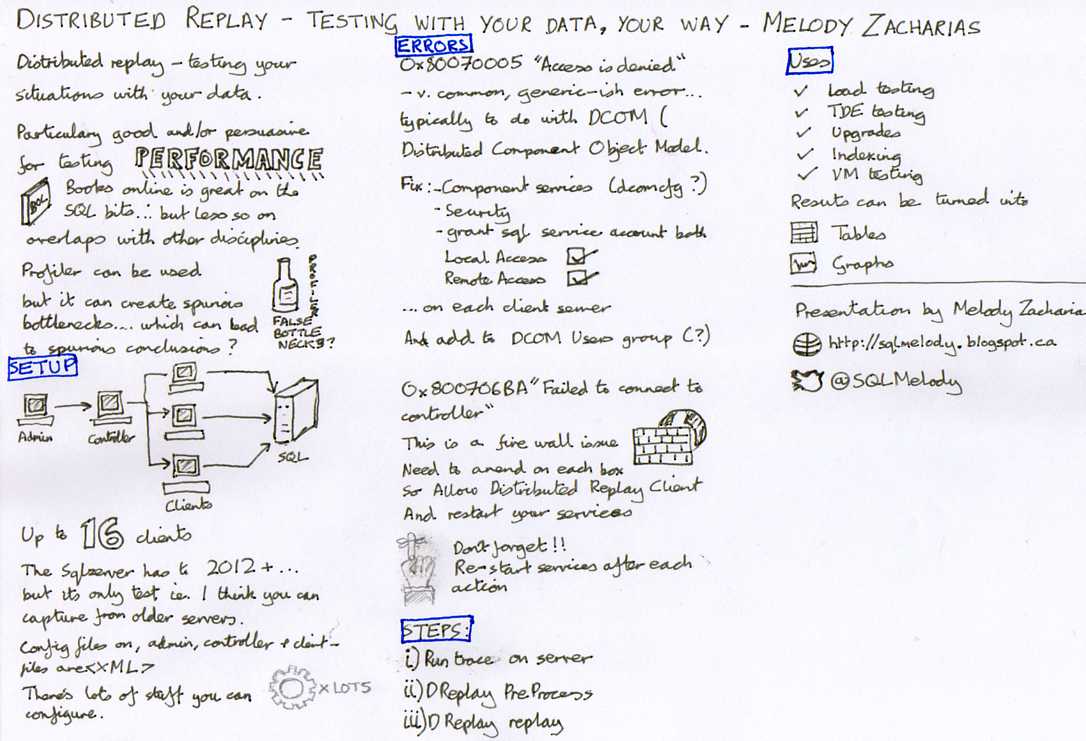 DISTRIBUTED REPLAY - TESTING WITH YOUR DATA, YOUR WAY - MELODY ZACHARIAS
Distributed replay - testing your
situations with your data.
Particulary good and/or persuasive
for testing PERFORMANCE
BOL
Books online is great on the
SQL bits... but less so on
overlaps with other disciplines.
Profiler can be used
but it can create spurious
bottlenecks.... which can lead
to spurious conclusions?
PROFILER
FALSE
BOTTLE
NECKS?
SETUP
Admin
Controller
Clients
SQL
Up to 16 clients
The Sqlserver has to 2012+...
but its only test ie. I think you can
capture from older servers.
Config files on, admin, controller + client -
files are <XML>
There's lots of stuff you can
configure.
X LOTS
ERRORS
0x80070005 "Access is denied"
- v. common, generic-ish error...
typically to do with DCOM (
Distributed Component Object Model.
Fix: - Component services (dcomcfg?)
- Security
- grant sql service account both
Local Access
Remote Access
... on each client server
And add to DCOM Users group (?)
0x800706BA "Failed to connect to
controller"
This is a fire wall issue
Need to amend on each box
So Allow Distributed Replay Client
And restart your services
Don't forget!!
Re-start services after each
action
STEPS:
i) Run trace on server
ii) DReplay PreProcess
iii) DReplay replay
Uses
✓ Load testing
✓ TDE testing
✓ Upgrades
✓ Indexing
✓ VM testing
Results can be turned into
Tables
Graphs
Presentation by Melody Zacharia
http://sqlmelody.blogspot.ca
@SQLMelody